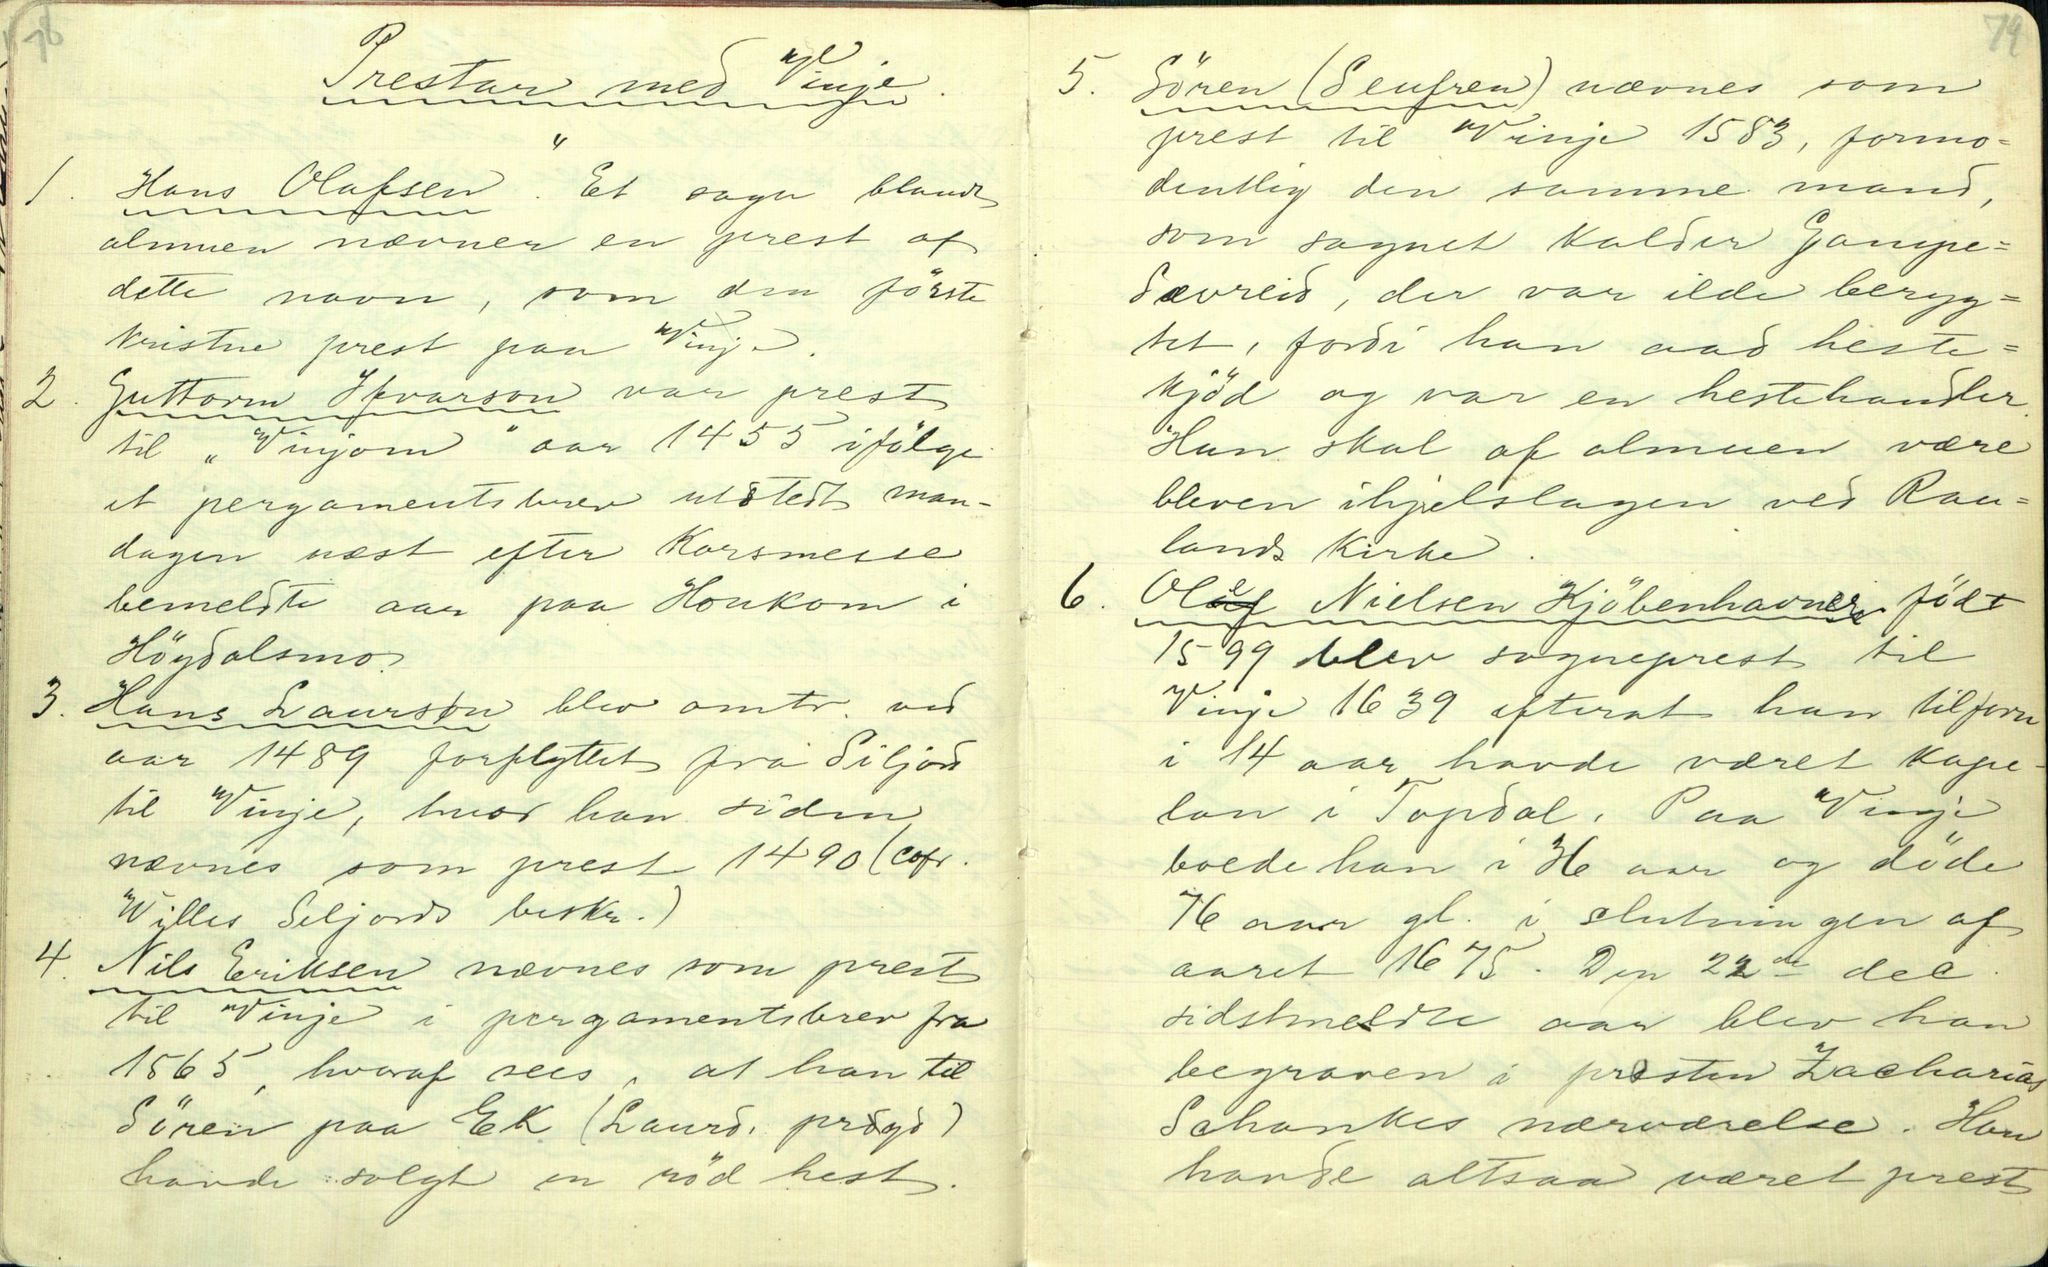 78
Prestar med Vinje.
"
1. Hans Olafsen. Et sagn blandt
almuen nævner en prest af
dette navn, som den förste
kristne prest paa Vinje.
2. Guttorm Ifvarson var prest
til „Vinjom" aar 1455 ifölge
et pergamentsbrev utstedt man-
dagen næst efter Korsmesse
bemeldte aar paa Honkom i
Höydalsmo.
3. Hans Laurson blev omtr. ved
aar 1489 forflyttet fra Siljord
til Vinje, hvor han siden
nævnes som prest 1490 (cofr.
Willes Seljords beskr.)
4. Nils Eriksen nævnes som prest
til Vinje i pergamentsbrev fra
1565, hvoraf sees, at han til
Sören paa EK (Laurd. prsgd)
havde solgt en röd hest.
79
5. Sören (Seufren) nævnes som
prest til Vinje 1583, formo=
dentlig den samme mand,
som sagnet kalder Gampe=
Sævreid, der var ilde beryg=
tet, fordi han aad heste=
kjöd og var en hestehandler.
Han skal af almuen være
bleven ihjelslagen ved Rau=
lands Kirke.
6. Olef Nielsen Kjöbenhavner född
1599 blev sogneprest til
Vinje 1639 efterat han tilforn
i 14 aar havde været kape-
lan i Topdal. Paa Vinje
boede han i 36 aar og döde
76 aar gl. i slutningen af
aaret 1675. Den 22de dec.
sidstmeldte aar blev han
begraven i presten Zacharias
Schankes nærværelse. Han
havde altsaa været prest